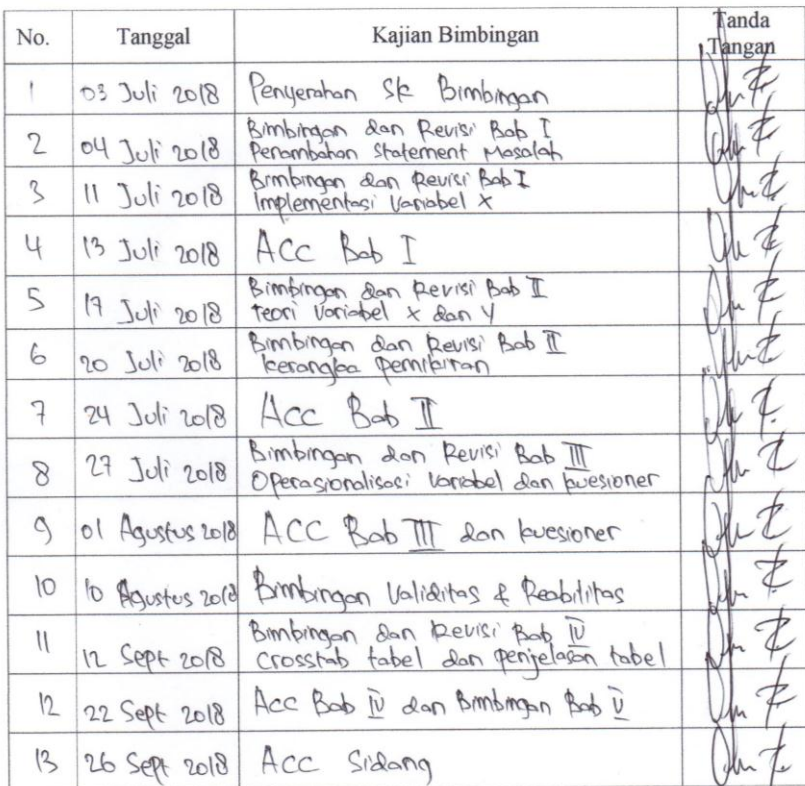 No. Tanggal Kajian Bimbingan Tanda
Tangan
1 03 Juli 2018 Penyerahan SK Bimbingan
2 04 Juli 2018 Bimbingan dan Revisi Bab I
Penambahan Statement Masalah
3 11 Juli 2018 Bimbingan dan Revisi Bab I
Implementasi Variabel X
4 13 Juli 2018 ACC Bab I
5 17 Juli 2018 Bimbingan dan Revisi Bab II
teori Variabel X dan Y
6 20 Juli 2018 Bimbingan dan Revisi Bab II
kerangka pemikiran
7 24 Juli 2018 Acc Bab II
8 27 Juli 2018 Bimbingan dan Revisi Bab III
Operasionalisasi Variabel dan kuesioner
9 01 Agustus 2018 ACC Bab III dan kuesioner
10 10 Agustus 2018 Bimbingan Validitas & Reabilitas
11 12 Sept 2018 Bimbingan dan Revisi Bab IV
Crosstab tabel dan penjelasan tabel
12 22 Sept 2018 Acc Bab IV dan Bimbingan Bab V
13 26 Sept 2018 Acc Sidang